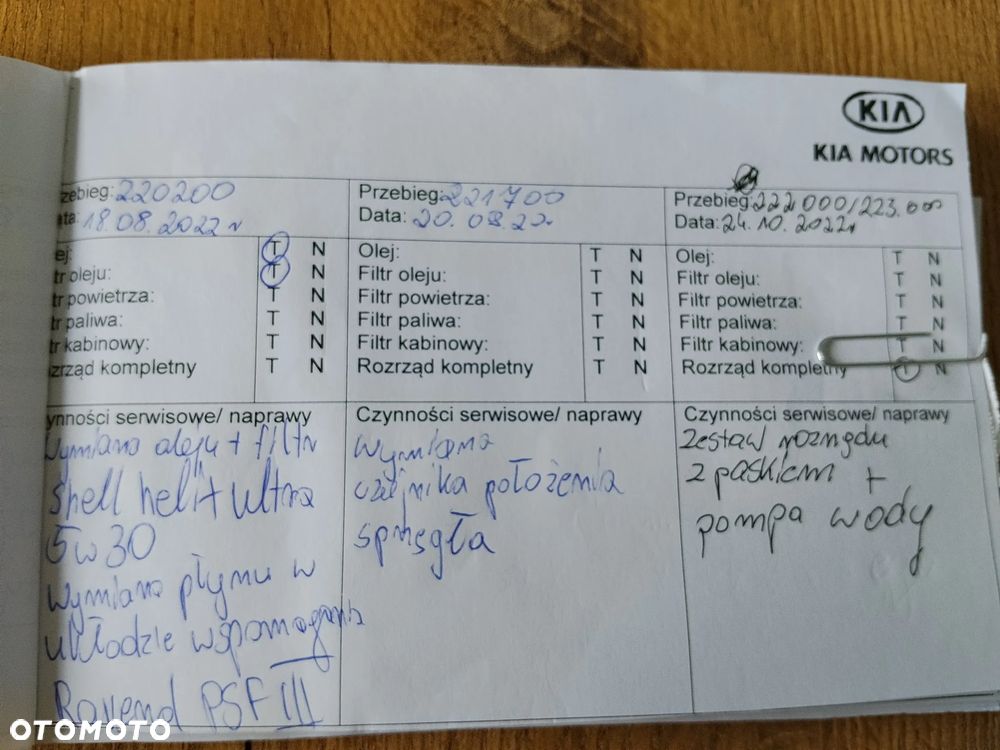 KIA
KIA MOTORS
zebieg: 220200
ta: 18.08.2022r
ej: T N
tr oleju: T N
tr powietrza: T N
tr paliwa: T N
tr kabinowy: T N
zrząd kompletny T N
ynności serwisowe/ naprawy
Wymiana oleju + filtr
Shell helix ultra
5w30
Wymiana płynu w
układzie wspomagania
Ravenol PSF III
Przebieg: 221700
Data: 20.08.22r
Olej: T N
Filtr oleju: T N
Filtr powietrza: T N
Filtr paliwa: T N
Filtr kabinowy: T N
Rozrząd kompletny T N
Czynności serwisowe/ naprawy
Wymiana
czujnika położenia
sprzęgła
Przebieg: 222000/223.000
Data: 24.10.2022r
Olej: T N
Filtr oleju: T N
Filtr powietrza: T N
Filtr paliwa: T N
Filtr kabinowy: T N
Rozrząd kompletny T N
Czynności serwisowe/ naprawy
Zestaw rozrządu
z paskiem +
pompa wody
OTOMOTO